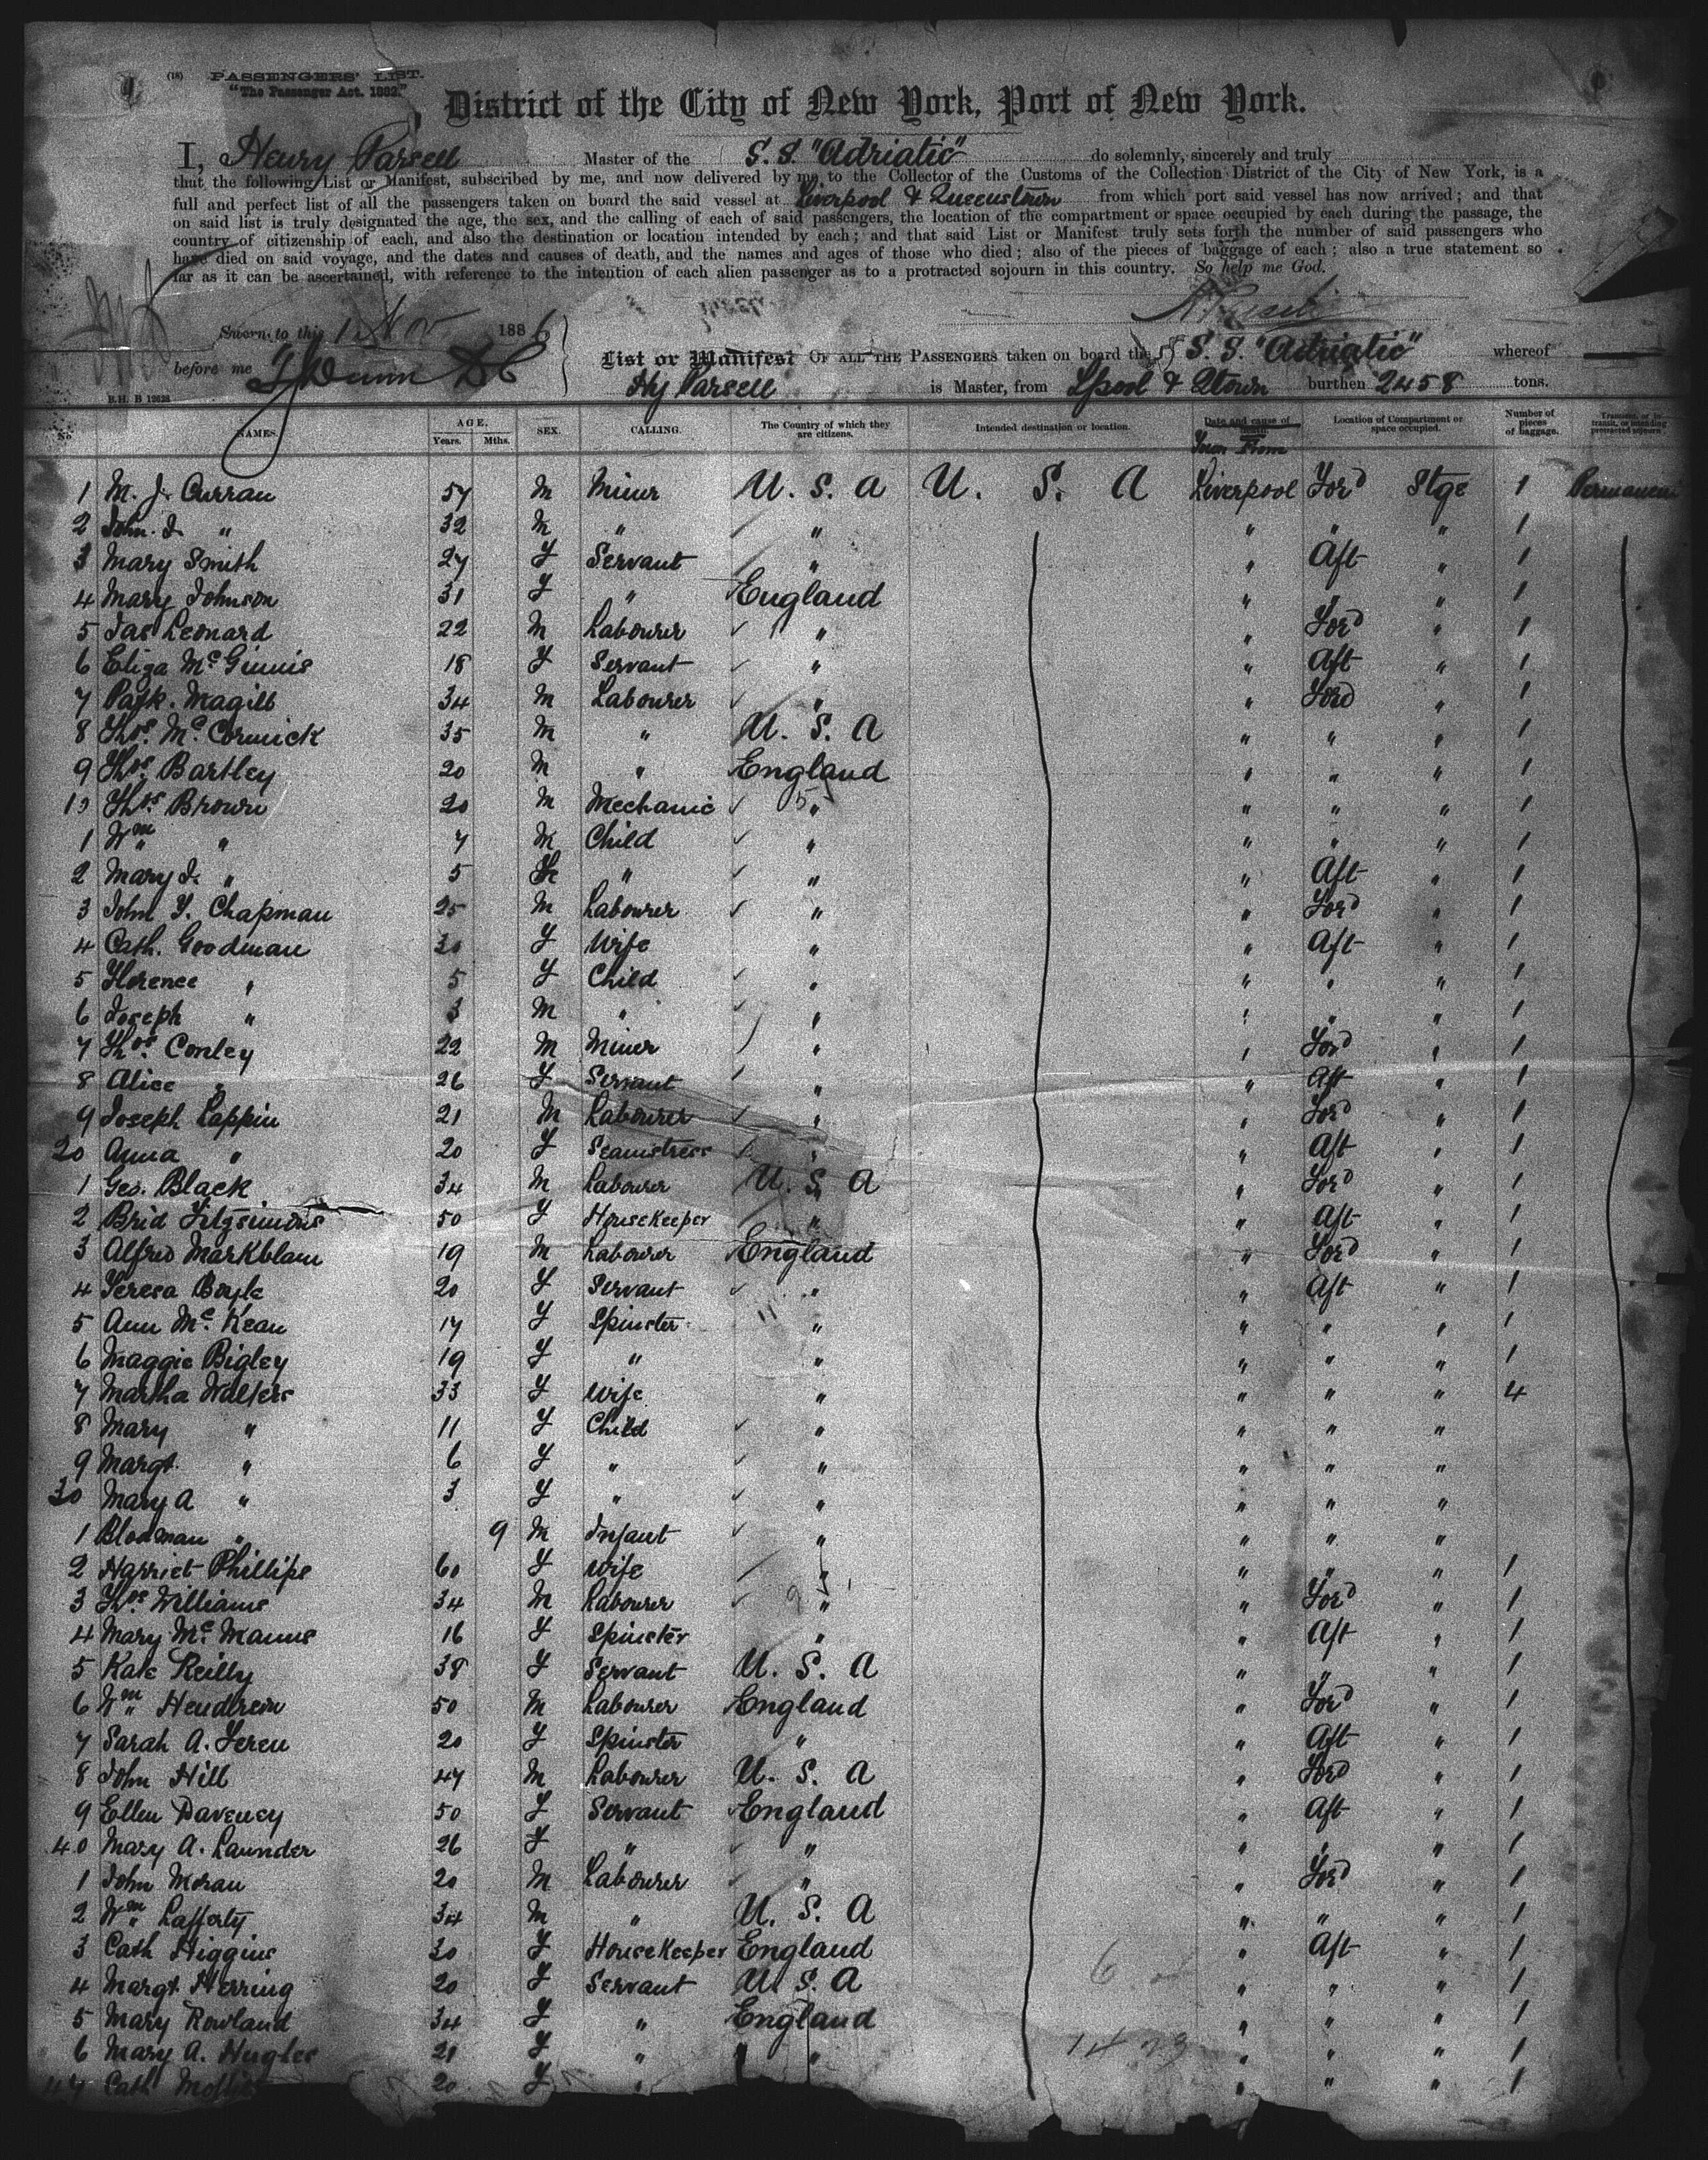 (18) PASSENGERS' LIST.
"The Passenger Act. 1882."
District of the City of New York, Port of New York.
I, Henry Parsell Master of the S.S. "Adriatic" do solemnly, sincerely and truly
that the following List or Manifest, subscribed by me, and now delivered by me to the Collector of the Customs of the Collection District of the City of New York, is a
full and perfect list of all the passengers taken on board the said vessel at Liverpool & Queenstown from which port said vessel has now arrived; and that
on said list is truly designated the age, the sex, and the calling of each of said passengers, the location of the compartment or space occupied by each during the passage, the
country of citizenship of each, and also the destination or location intended by each; and that said List or Manifest truly sets forth the number of said passengers who
have died on said voyage, and the dates and causes of death, and the names and ages of those who died; also of the pieces of baggage of each; also a true statement so
far as it can be ascertained, with reference to the intention of each alien passenger as to a protracted sojourn in this country. So help me God.
Sworn to this 1 Nov 1886
List or Manifest OF ALL THE PASSENGERS taken on board the S.S. "Adriatic" whereof
before me Hy Parsell is Master, from Lpool & Qtown burthen 2458 tons.
B.H. B 12628
No NAMES. AGE. Years. Mths. SEX. CALLING. The Country of which they are citizens. Intended destination or location. Date and cause of death Location of Compartment or space occupied. Number of pieces of baggage. Transient, or in transit, or intending protracted sojourn
From
1 M. J. Curran 57 M Miner U. S. A U. S. A Liverpool Ford Stge 1 Permanent
2 John. J. " 32 M " " " " " 1
3 Mary Smith 27 F Servant " " Aft " 1
4 Mary Johnson 31 F " England " " " 1
5 Jas Leonard 22 M Labourer " " Ford " 1
6 Eliza McGinnis 18 F Servant " " Aft " 1
7 Patk. Magill 34 M Labourer " " Ford " 1
8 Thos. McCormick 35 M " U. S. A " " " 1
9 Thos Bartley 20 M " England " " " 1
10 Thos. Brown 20 M Mechanic " " " " 1
1 Wm " 7 M Child " " " " 1
2 Mary J. " 5 F " " " Aft " 1
3 John F. Chapman 25 M Labourer " " Ford " 1
4 Cath. Goodman 30 F Wife " " Aft " 1
5 Florence " 5 F Child " " " " 1
6 Joseph " 3 M " " " " " 1
7 Thos. Conley 22 M Miner " " Ford " 1
8 Alice " 26 F Servant " " Aft " 1
9 Joseph Lappin 21 M Labourer " " Ford " 1
20 Anna " 20 F Seamstress " " Aft " 1
1 Geo. Black 34 M Labourer U. S. A " Ford " 1
2 Brid Fitzsimons 50 F Housekeeper " " Aft " 1
3 Alfred Markblam 19 M Labourer England " Ford " 1
4 Teresa Boyle 20 F Servant " " Aft " 1
5 Ann Mc. Kean 17 F Spinster " " " " 1
6 Maggie Bigley 19 F " " " " " 1
7 Martha Walters 33 F Wife " " " " 4
8 Mary " 11 F Child " " " "
9 Margt. " 6 F " " " " "
30 Mary A " 3 F " " " " "
1 Blodman " 9 M Infant " " " "
2 Harriet Phillips 60 F Wife " " " " 1
3 Thos. Williams 34 M Labourer " " Ford " 1
4 Mary Mc. Manus 16 F Spinster " " Aft " 1
5 Kate Reilly 38 F Servant U. S. A " " " 1
6 Wm 50 M Labourer England " Ford " 1
7 Sarah A. 20 F Spinster " " Aft " 1
8 John Hill 47 M Labourer U. S. A " Ford " 1
9 Ellen Daveney 50 F Servant England " Aft " 1
40 Mary A. Launder 26 F " " " " " 1
1 John Moran 20 M Labourer " " Ford " 1
2 Wm Lafferty 34 M " U. S. A " " " 1
3 Cath Higgins 30 F Housekeeper England " Aft " 1
4 Margt. Herring 20 F Servant U. S. A " " " 1
5 Mary Rowland 34 F " England " " " 1
6 Mary A. Hughes 21 F " " " " " 1
47 Cath 20 F " " " " 1